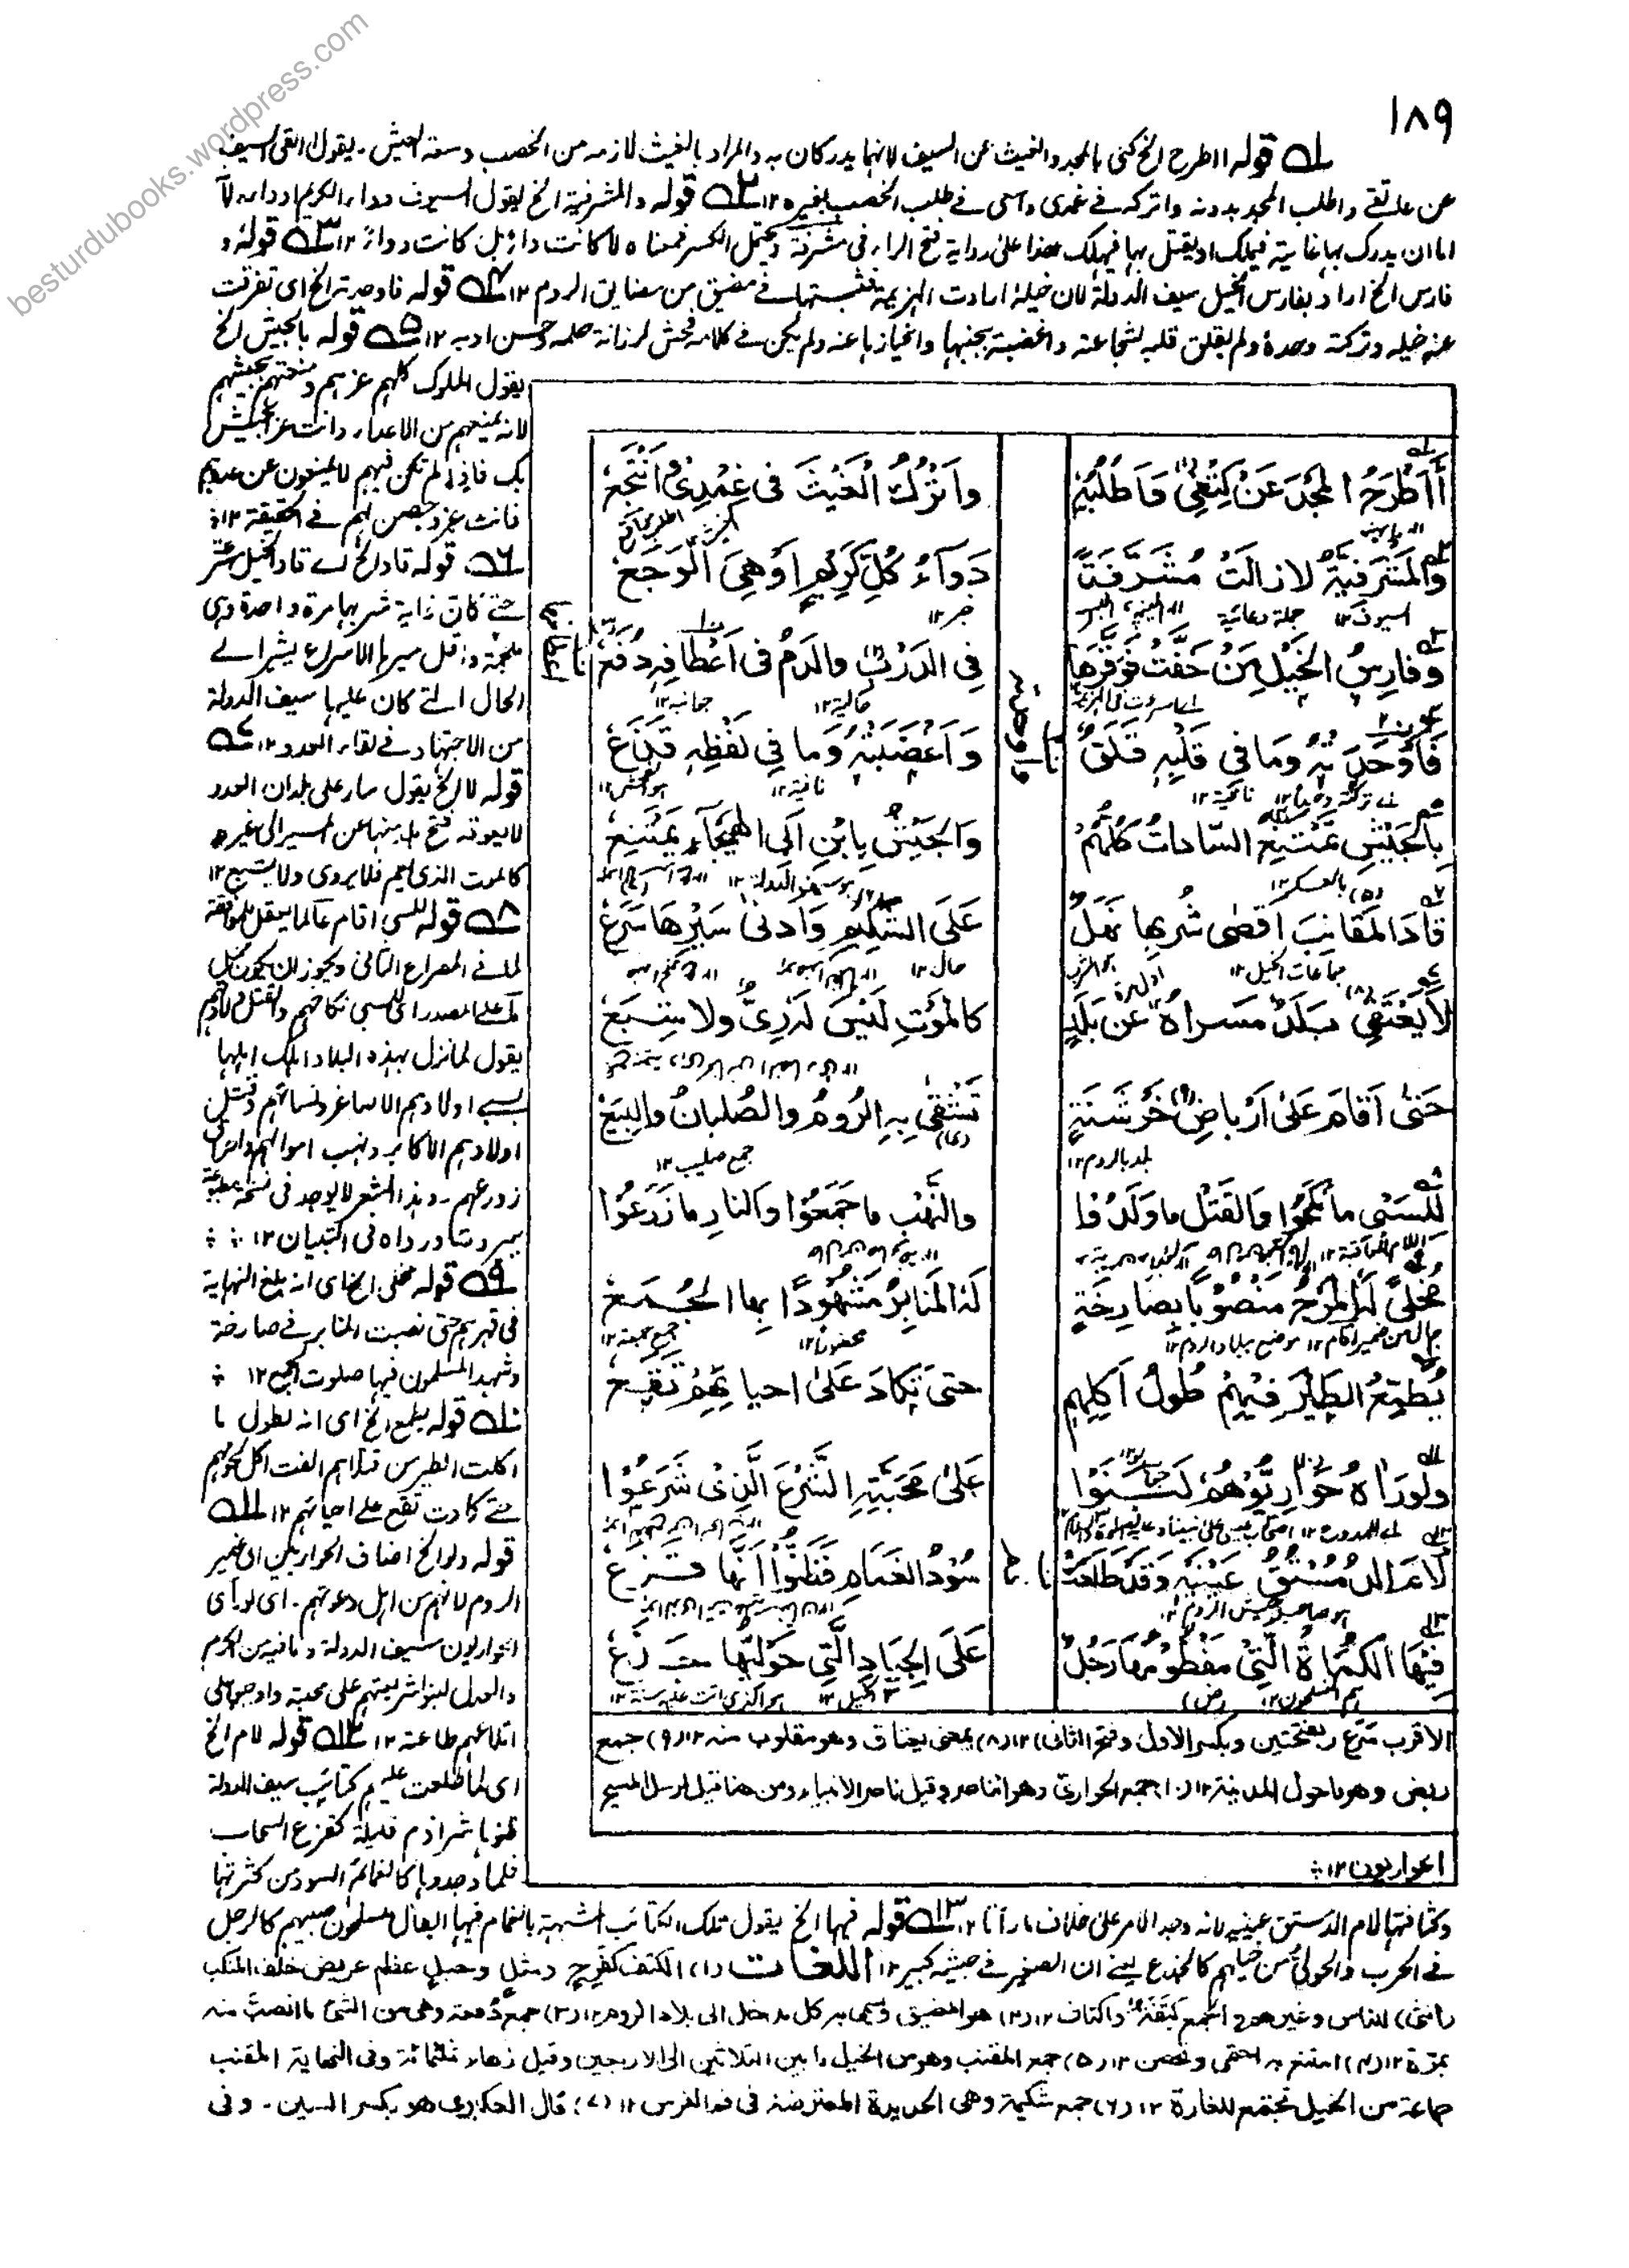 besturdubooks.wordpress.com
١٨٩
قوله ااطرح الخ كنى بالمجد والغيث عن السيف لانهما يدركان به والمراد بالغيث لازمه من الخصب وسعة العيش ـ يقول االقى السيف
عن عاتقى واطلب المجد بدونه واتركه فى غمدى واسى فى طلب الخصب بغيره ١٢ قوله والمشرفية الخ يقول السيوف دواء الكريم او داءه لا
اما ان يدرك بها غايته فيملك او يقتل بها فيهلك هذا على رواية فتح الراء فى مشرفة ويحتمل الكسر فمعناه لا كانت داءً بل كانت دواءً ١٢ قوله و
فارس الخ اراد بفارس الخيل سيف الدولة لان خيله ارادت الهزيمة فثبتها فى مضيق من مضايق الروم ١٢ قوله فاوحدته الخ اى تفرقت
عنه خيله وتركته وحده ولم يقلق قلبه لشجاعته واغضبته بجبنها وانحيازها عنه ولم يكن فى كلامه فحش لرزانة حلمه وحسن ادبه ١٢ قوله بالجيش الخ
يقول الملوك كلهم عزهم ومنعتهم بجيشهم
لانه يمنعهم من الاعداء وانت عز الجيش
بك فاذا لم تكن فيهم لا يمتنعون عن عدوهم
فانت عز وحصن لهم فى الحقيقة ١٢
قوله قاد الخ
حتى كان غاية شربها مرة واحدة وهى
ملجمة واقل سيرها الاسراع يشير الى
الحال التى كان عليها سيف الدولة
من الاجتهاد فى لقاء العدو ١٢
قوله لا الخ يقول سار على بلدان العدو
لا يعوقه فتح بلد منها عن المسير الى غيره
كالموت الذى يعم فلا يروى ولا يشبع ١٢
قوله للسبى
يقول لما نزل بهذه البلاد اهلك اهلها
بسبى اولادهم الاصاغر ونسائهم وقتل
اولادهم الاكابر ونهب اموالهم واحراق
زروعهم ـ وهذا الشعر لا يوجد فى نسخة مطبوعة
قوله مخلى الخ اى انه بلغ النهاية
فى قهرهم حتى نصبت المنابر فى صارخة
وشهد المسلمون فيها صلوت الجمع ١٢
قوله يطمع الخ اى انه لطول ما
اكلت الطير من قتلاهم الفت اكل لحومهم
حتى كادت تقع على احيائهم ١٢
قوله ولو الخ اضاف الحواريين الى ضمير
الروم لانهم من اهل دعوتهم ـ اى لو رأى
الحواريون سيف الدولة وما فيه من الكرم
والعدل لبنوا شريعتهم على محبته واوجبوا على
اتباعهم طاعته ١٢ قوله لام الخ
اى لما طلعت عليهم كتائب سيف الدولة
ظنوها شراذم قليلة كقزع السحاب
فلما وجدوها كالغمائم السود من كثرتها
أَأَطْرَحُ المَجْدَ عَنْ كَتْفِى وَأَطْلُبُهُ وَأَتْرُكُ الْغَيْثَ فى غِمْدِىْ وَأَنْتَجِعُ
وَالمَشْرَفِيَّةُ لازالَتْ مُشَرَّفَةً دَوَآءُ كُلِّ كَرِيْمٍ أَوْ هِىَ الْوَجَعُ
السيوف ١٢ جملة دعائية
وَفارِسُ الخَيْلِ مَنْ خَفَّتْ فَوَقَّرَهَا فِي الدَرْبِ والدَمُ فى أَعْطافِهِ دُفَعُ
حالية ١٢ جوانبه ١٢
فَأَوْحَدَتْهُ وَمَا فى قَلْبِهِ قَلَقٌ وَأَغْضَبَتْهُ وَما فِي لَفْظِهِ قَذَعُ
نافية ١٢ هو الفحش ١٢
بِالْجَيْشِ تَمْتَنِعُ السّاداتُ كُلُّهُمُ وَالجَيْشُ بِابْنِ اَبِى الهَيْجَآءِ يَمْتَنِعُ
(٥) بالعسكر ١٢ هو سيف الدولة ١٢
قادَ المَقانِبَ اَقْصٰى شُربِها نَهَلٌ عَلَى الشَكِيْمِ وَأدنىٰ سَيْرِها سَرَعُ
جماعات الخيل ١٢ حال ١٢
لا يَعْتَقِى بَلَدٌ مَسراهُ عَن بَلَدٍ كالمَوْتِ لَيْسَ لَهُ رِىٌّ ولا شِبَعُ
حَتىٰ اَقامَ عَلىٰ اَرْباضِ خَرْشَنَةٍ تَشْقىٰ بِهِ الرُومُ والصُلبانُ والبِيَعُ
بلد بالروم ١٢ جمع صليب ١٢
لِلسَبْىِ ما نَكَحُوا وَالقَتْلِ ما وَلَدُوا والنَهْبِ ما جَمَعُوا والنارِ ما زَرَعُوا
مُخلىً لَهُ المَرْجُ مَنصُوبًا بِصارِخَةٍ لَهُ المَنابِرُ مَشْهُودًا بِها الجُمَعُ
حال من ضمير اقام ١٢ موضع ببلاد الروم ١٢ جمع جمعة ١٢
يُطَمِّعُ الطَيْرَ فِيْهِمْ طُولُ اَكْلِهِمِ حتىٰ تَكادَ عَلىٰ احيائِهِمْ تَقَعُ
ولَوْ رَاٰهُ حَوارِيُّوهُمْ لَبَنَوْا عَلىٰ مَحَبَّتِهِ الشَّرْعَ الَّذِىْ شَرَعُوْا
لامَ الدُمُسْتُقُ عَيْنَيْهِ وَقَدْ طَلَعَتْ سُوْدُ الغَمامِ فَظَنُّوْا اَنَّها قَزَعُ
فِيْهَا الكُمَاةُ الَّتِىْ مَفْطُومُهَا رَجُلٌ عَلَى الجِيادِ الَّتِى حَوْلِيُّها جَذَعُ
هم المسلمون ١٢
الاقرب سَرَع بفتحتين وبكسر الاول وفتح الثانى) ١٢ (٨) بمعنى يعتاق وهو مقلوب منه ١٢ (٩) جمع
ربض وهو ما حول المدينة ١٢ (١٠) جمع الحوارىّ وهو الناصر وقيل ناصر الانبياء ومن هنا قيل لرسل المسيح
الحواريون ١٢
وكثافتها لام الدمستق عينيه لانه وجد الامر على خلاف ما رأتا ١٢ قوله فيها الخ يقول تلك الكتائب المشبهة بالغمام فيها ابطال مسلمون صبيهم كالرجل
فى الحرب والحولى من خيلهم كالجذع يعنى ان الصغير فى جيشه كبير ١٢ اللغات (١) الكتف كفَرِحٍ ومثلٍ وحبلٍ عظم عريض خلف المنكب
(انثى) للناس وغيرهم ج الجمع كِتَفَة واكتاف ١٢ (٢) هو المضيق ويسمى به كل مدخل الى بلاد الروم ١٢ (٣) جمع دُفعة وهى من الشئ ما انصبّ منه
بمرّة ١٢ (٤) امتنع به احتمى وتحصن ١٢ (٥) جمع المقنب وهو من الخيل ما بين الثلاثين الى الاربعين وقيل زهاء ثلثمائة وفى النهاية المقنب
جماعة من الخيل تجتمع للغارة ١٢ (٦) جمع شكيمة وهى الحديدة المعترضة فى فم الفرس ١٢ (٧) قال العكبرى هو بكسر السين ـ وفى